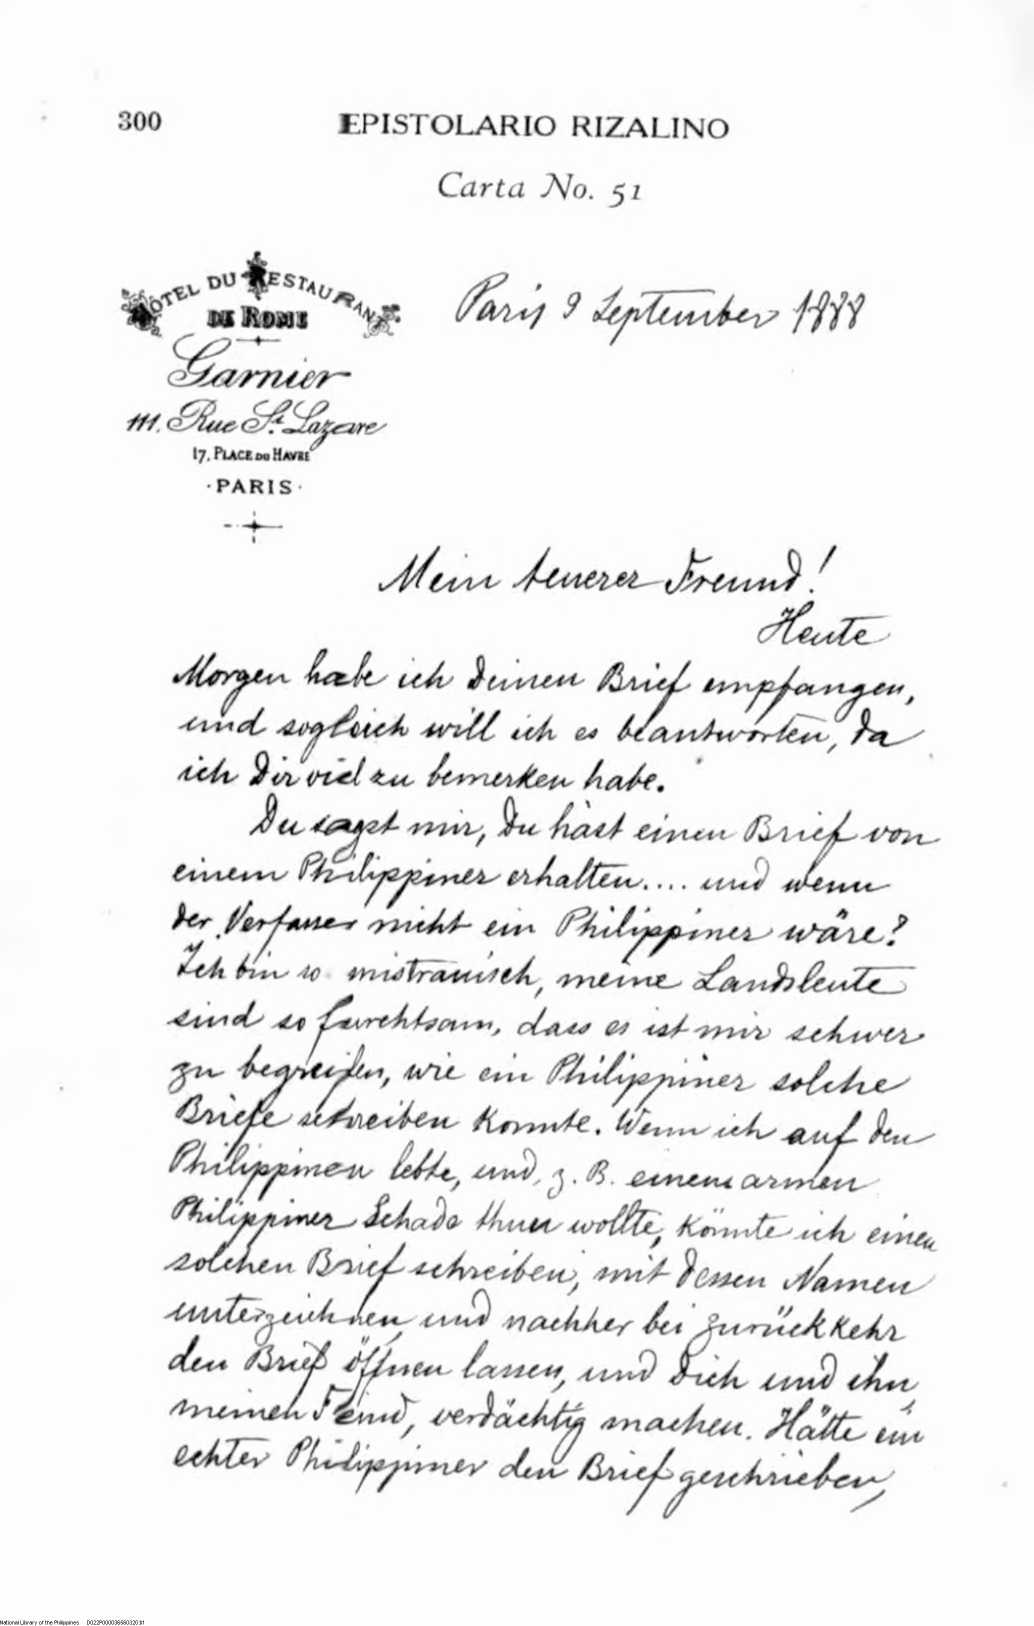 300
EPISTOLARIO RIZALINO
Carta No. 51
HÔTEL DU RESTAURANT
DE ROME
Garnier
111. Rue St. Lazare
17, PLACE DU HAVRE
· PARIS ·
Paris 9 September 1888
Mein teuerer Freund!
Heute
Morgen habe ich Deinen Brief empfangen,
und sogleich will ich es beantworten, da
ich Dir viel zu bemerken habe.
Du sagst mir, Du hast einen Brief von
einem Philippiner erhalten.... und wenn
der Verfasser nicht ein Philippiner wäre?
Ich bin so mistrauisch, meine Landsleute
sind so furchtsam, dass es ist mir schwer
zu begreifen, wie ein Philippiner solche
Briefe schreiben konnte. Wenn ich auf den
Philippinen lebte, und, z. B. einem armen
Philippiner Schade thun wollte, könnte ich einen
solchen Brief schreiben, mit dessen Namen
unterzeichnen, und nachher bei zurückkehr
den Brief öffnen lassen, und Dich und ihn,
meinen Feind, verdächtig machen. Hätte ein
echter Philippiner den Brief geschrieben,
National Library of the Philippines